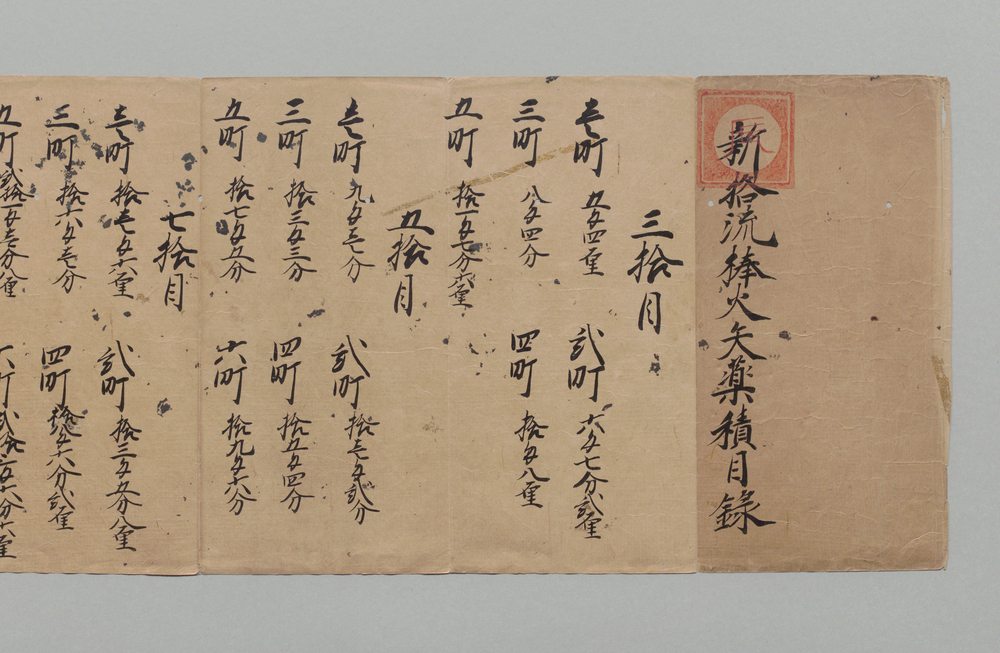 新拾流棒火矢薬積目録
三拾目
壱町 五匁四厘 弐町 六匁七分弐厘
三町 八匁四分 四町 拾匁八厘
五町 拾一匁七分六厘
五拾目
壱町 九匁壱分 弐町 拾壱匁弐分
三町 拾三匁三分 四町 拾五匁四分
五町 拾七匁五分 六町 拾九匁六分
七拾目
壱町 拾壱匁六厘 弐町 拾三匁五分八厘
三町 拾六匁壱分 四町 拾八匁六分弐厘
五町 弐拾一匁壱分八厘 六町 弐拾三匁六分六厘